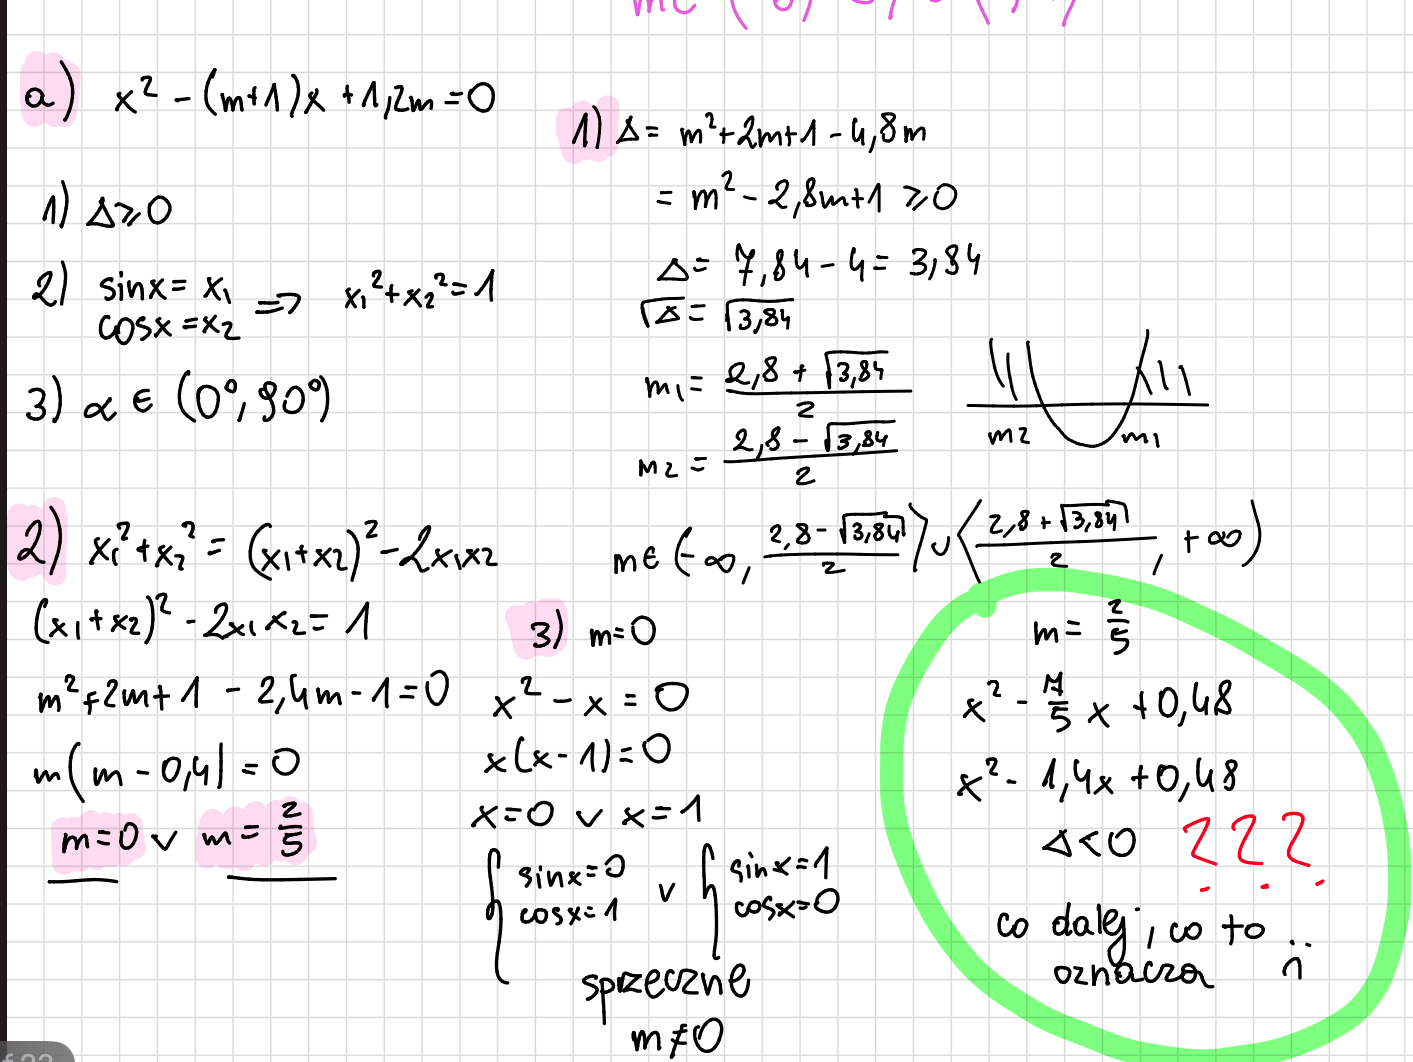 a) x² - (m+1)x + 1,2m = 0
1) Δ ⩾ 0
2) sinx = x₁
cosx = x₂ ⇒ x₁² + x₂² = 1
3) α ∈ (0°, 90°)
1) Δ = m² + 2m + 1 - 4,8m
= m² - 2,8m + 1 ⩾ 0
Δ = 7,84 - 4 = 3,84
√Δ = √3,84
m₁ = (2,8 + √3,84)/2
m₂ = (2,8 - √3,84)/2
m2 m₁
m ∈ (-∞, (2,8 - √3,84)/2⟩ ∪ ⟨(2,8 + √3,84)/2, +∞)
2) x₁² + x₂² = (x₁ + x₂)² - 2x₁x₂
(x₁ + x₂)² - 2x₁x₂ = 1
m² + 2m + 1 - 2,4m - 1 = 0
m(m - 0,4) = 0
m = 0 ∨ m = 2/5
3) m = 0
x² - x = 0
x(x - 1) = 0
x = 0 ∨ x = 1
{ sinx = 0 ∨ { sinx = 1
cosx = 1 cosx = 0
sprzeczne
m ≠ 0
m = 2/5
x² - 7/5 x + 0,48
x² - 1,4x + 0,48
Δ < 0 ???
co dalej, co to
oznacza :(